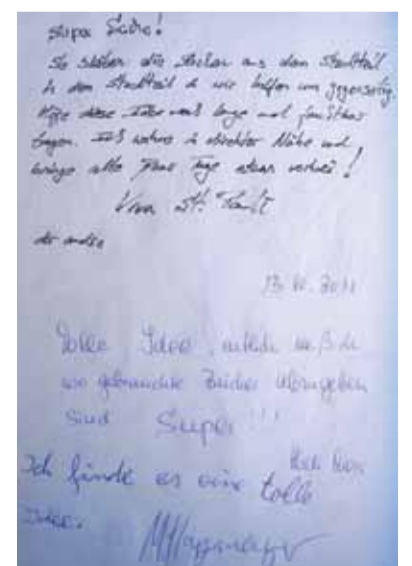 Supa Sache!
So bleiben die Sachen aus dem Stadtteil
in dem Stadtteil & wir helfen uns gegenseitig.
Möge diese Idee noch lange und
tragen. Ich wohne in direkter Nähe und
bringe alle paar Tage etwas vorbei!
Viva St. Pauli
der andre
13. 10. 2011
Tolle Idee, endlich weiß ich
wo gebrauchte Bücher
sind Super!!!
Ich finde es eine tolle
Idee.